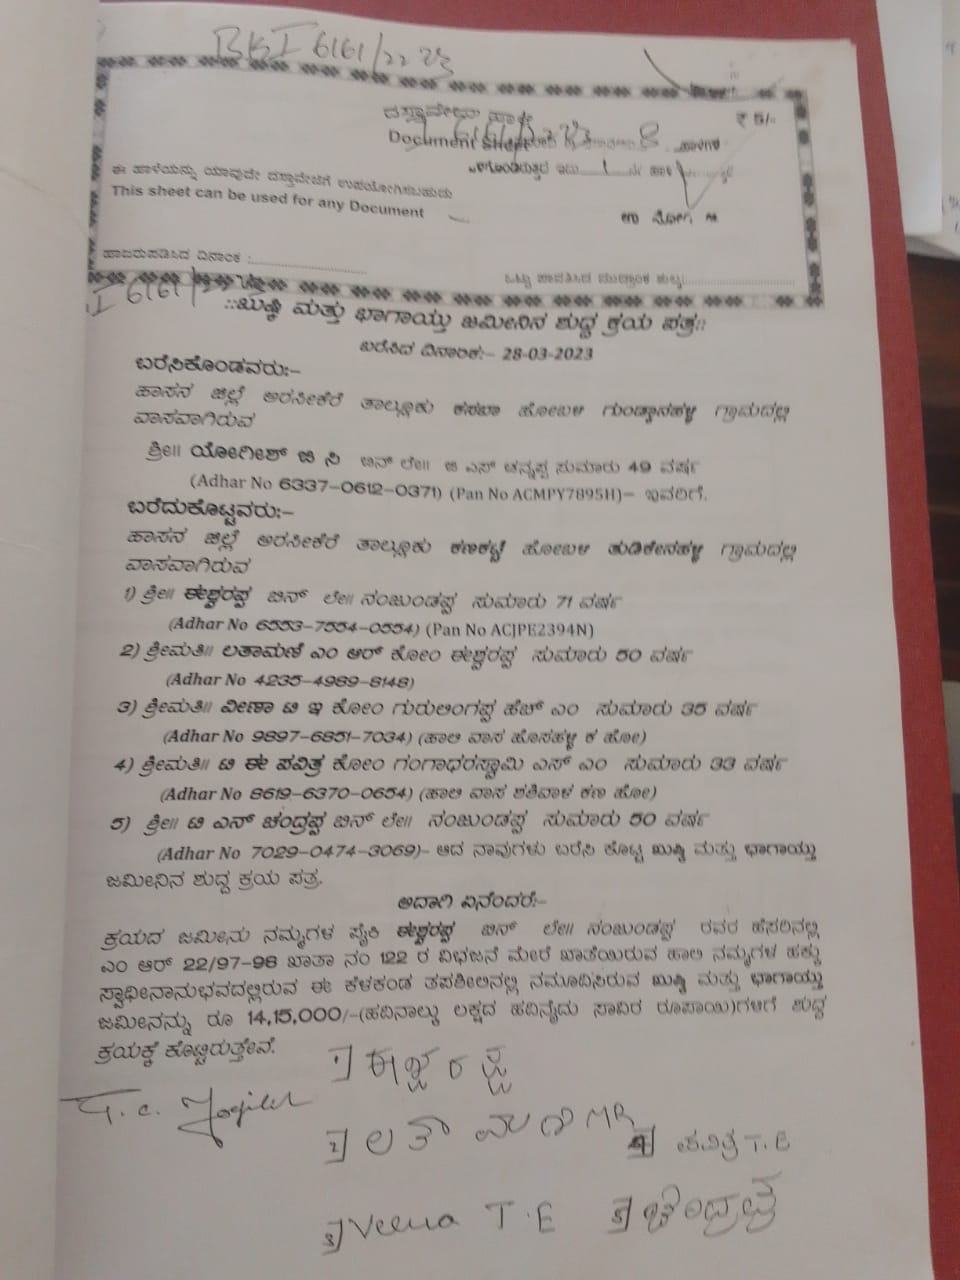 BKI 6161/22-23
ದಸ್ತಾವೇಜು ಹಾಳೆ
₹ 5/-
Document Sheet
ಈ ಹಾಳೆಯನ್ನು ಯಾವುದೇ ದಸ್ತಾವೇಜಿಗೆ ಉಪಯೋಗಿಸಬಹುದು
This sheet can be used for any Document
ಹಾಜರುಪಡಿಸಿದ ದಿನಾಂಕ :
ಒಟ್ಟು ಪಾವತಿಸಿದ ಮುದ್ರಾಂಕ ಶುಲ್ಕ:
::ಖುಷ್ಕಿ ಮತ್ತು ಭಾಗಾಯ್ತು ಜಮೀನಿನ ಶುದ್ಧ ಕ್ರಯ ಪತ್ರ::
ಬರೆಸಿದ ದಿನಾಂಕ:– 28-03-2023
ಬರೆಸಿಕೊಂಡವರು:–
ಹಾಸನ ಜಿಲ್ಲೆ ಅರಸೀಕೆರೆ ತಾಲ್ಲೂಕು ಕಸಬಾ ಹೋಬಳಿ ಗ್ರಾಮದಲ್ಲಿ
ವಾಸವಾಗಿರುವ
ಶ್ರೀ॥ ಯೋಗೀಶ್ ಬಿನ್ ಲೇ॥ ಸುಮಾರು 49 ವರ್ಷ
(Adhar No 6337–0612–0371) (Pan No ACMPY7895H)– ಇವರಿಗೆ.
ಬರೆದುಕೊಟ್ಟವರು:–
ಹಾಸನ ಜಿಲ್ಲೆ ಅರಸೀಕೆರೆ ತಾಲ್ಲೂಕು ಕಣಕಟ್ಟೆ ಹೋಬಳಿ ಗ್ರಾಮದಲ್ಲಿ
ವಾಸವಾಗಿರುವ
1) ಶ್ರೀ॥ ಈಶ್ವರಪ್ಪ ಬಿನ್ ಲೇ॥ ನಂಜುಂಡಪ್ಪ ಸುಮಾರು 71 ವರ್ಷ
(Adhar No 6553–7554–0554) (Pan No ACJPE2394N)
2) ಶ್ರೀಮತಿ॥ ಲತಾಮಣಿ ಎಂ ಆರ್ ಕೋಂ ಈಶ್ವರಪ್ಪ ಸುಮಾರು 50 ವರ್ಷ
(Adhar No 4235–4989–8148)
3) ಶ್ರೀಮತಿ॥ ವೀಣಾ ಟಿ ಇ ಕೋಂ ಗುರುಲಿಂಗಪ್ಪ ಹೆಚ್ ಎಂ ಸುಮಾರು 35 ವರ್ಷ
(Adhar No 9897–6851–7034) (ಹಾಲಿ ವಾಸ ಹೊಸಹಳ್ಳಿ ಕ ಹೋ)
4) ಶ್ರೀಮತಿ॥ ಟಿ ಈ ಪವಿತ್ರ ಕೋಂ ಗಂಗಾಧರಸ್ವಾಮಿ ಎಸ್ ಎಂ ಸುಮಾರು 33 ವರ್ಷ
(Adhar No 8619–6370–0654) (ಹಾಲಿ ವಾಸ ಶಶಿವಾಳ ಕಣ ಹೋ)
5) ಶ್ರೀ॥ ಟಿ ಎನ್ ಚಂದ್ರಪ್ಪ ಬಿನ್ ಲೇ॥ ನಂಜುಂಡಪ್ಪ ಸುಮಾರು 50 ವರ್ಷ
(Adhar No 7029–0474–3069)– ಆದ ನಾವುಗಳು ಬರೆಸಿ ಕೊಟ್ಟ ಖುಷ್ಕಿ ಮತ್ತು ಭಾಗಾಯ್ತು
ಜಮೀನಿನ ಶುದ್ಧ ಕ್ರಯ ಪತ್ರ.
ಅದಾಗಿ ಏನೆಂದರೆ:–
ಕ್ರಯದ ಜಮೀನು ನಮ್ಮಗಳ ಪೈಕಿ ಈಶ್ವರಪ್ಪ ಬಿನ್ ಲೇ॥ ನಂಜುಂಡಪ್ಪ ರವರ ಹೆಸರಿನಲ್ಲಿ
ಎಂ ಆರ್ 22/97-98 ಖಾತಾ ನಂ 122 ರ ವಿಭಜನೆ ಮೇರೆ ಖಾತೆಯಿರುವ ಹಾಲಿ ನಮ್ಮಗಳ ಹಕ್ಕು
ಸ್ವಾಧೀನಾನುಭವದಲ್ಲಿರುವ ಈ ಕೆಳಕಂಡ ತಪಶೀಲಿನಲ್ಲಿ ನಮೂದಿಸಿರುವ ಖುಷ್ಕಿ ಮತ್ತು ಭಾಗಾಯ್ತು
ಜಮೀನನ್ನು ರೂ 14,15,000/–(ಹದಿನಾಲ್ಕು ಲಕ್ಷದ ಹದಿನೈದು ಸಾವಿರ ರೂಪಾಯಿ)ಗಳಿಗೆ ಶುದ್ಧ
ಕ್ರಯಕ್ಕೆ ಕೊಟ್ಟಿರುತ್ತೇವೆ.
1] ಈಶ್ವರಪ್ಪ
2] ಲತಾಮಣಿ MR
4] ಪವಿತ್ರ T.E
3] Veena T.E
5] ಚಂದ್ರಪ್ಪ